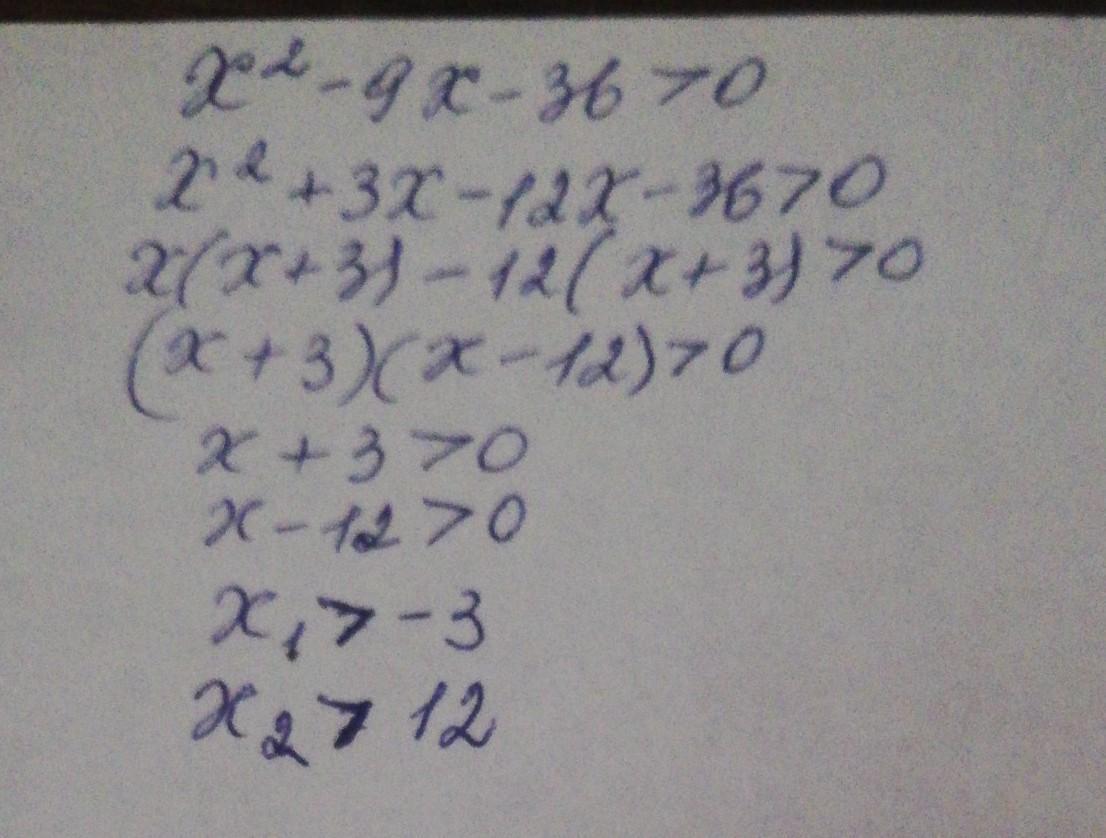 x² - 9x - 36 > 0
x² + 3x - 12x - 36 > 0
x(x + 3) - 12(x + 3) > 0
(x + 3)(x - 12) > 0
x + 3 > 0
x - 12 > 0
x₁ > -3
x₂ > 12